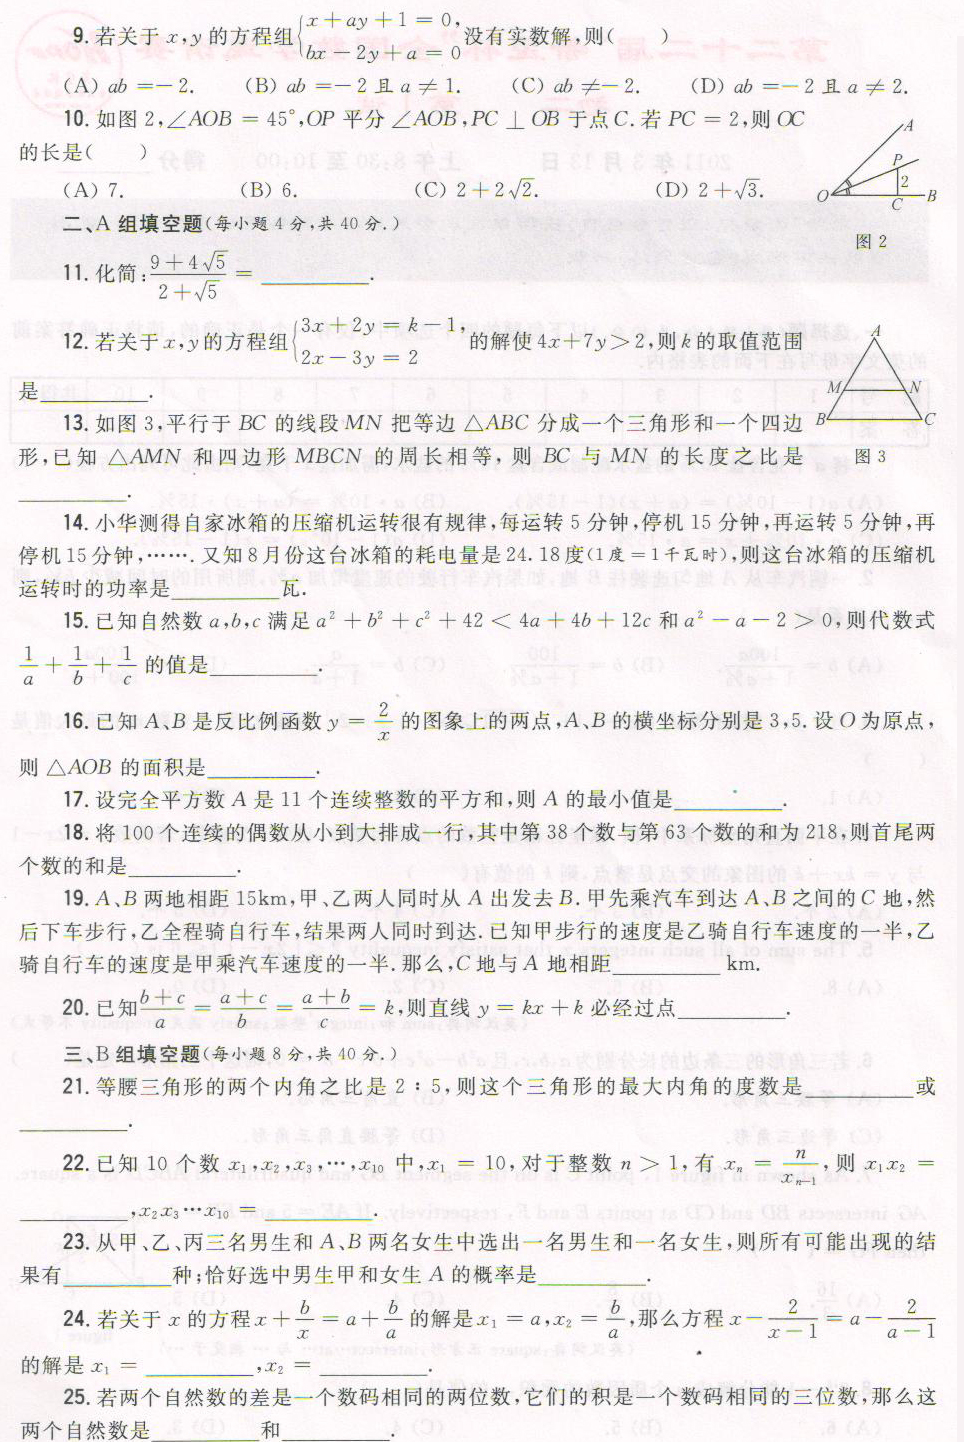 9. 若关于 x,y 的方程组{x+ay+1=0, bx-2y+a=0 没有实数解,则(　　)
(A) ab=-2.　(B) ab=-2 且 a≠1.　(C) ab≠-2.　(D) ab=-2 且 a≠2.
10. 如图 2,∠AOB=45°,OP 平分∠AOB,PC⊥OB 于点 C. 若 PC=2,则 OC
的长是(　　)
(A) 7.　(B) 6.　(C) 2+2√2.　(D) 2+√3.
A
P
2
O
C
B
图 2
二、A 组填空题(每小题 4 分,共 40 分.)
11. 化简:(9+4√5)/(2+√5)=________.
12. 若关于 x,y 的方程组{3x+2y=k-1, 2x-3y=2 的解使 4x+7y>2,则 k 的取值范围
是________.
13. 如图 3,平行于 BC 的线段 MN 把等边 △ABC 分成一个三角形和一个四边
形,已知 △AMN 和四边形 MBCN 的周长相等,则 BC 与 MN 的长度之比是
________.
A
M
N
B
C
图 3
14. 小华测得自家冰箱的压缩机运转很有规律,每运转 5 分钟,停机 15 分钟,再运转 5 分钟,再
停机 15 分钟,……. 又知 8 月份这台冰箱的耗电量是 24.18 度(1 度=1 千瓦时),则这台冰箱的压缩机
运转时的功率是________瓦.
15. 已知自然数 a,b,c 满足 a²+b²+c²+42<4a+4b+12c 和 a²-a-2>0,则代数式
1/a+1/b+1/c 的值是________.
16. 已知 A、B 是反比例函数 y=2/x 的图象上的两点,A、B 的横坐标分别是 3,5. 设 O 为原点,
则 △AOB 的面积是________.
17. 设完全平方数 A 是 11 个连续整数的平方和,则 A 的最小值是________.
18. 将 100 个连续的偶数从小到大排成一行,其中第 38 个数与第 63 个数的和为 218,则首尾两
个数的和是________.
19. A、B 两地相距 15km,甲、乙两人同时从 A 出发去 B. 甲先乘汽车到达 A、B 之间的 C 地,然
后下车步行,乙全程骑自行车,结果两人同时到达. 已知甲步行的速度是乙骑自行车速度的一半,乙
骑自行车的速度是甲乘汽车速度的一半. 那么,C 地与 A 地相距________km.
20. 已知(b+c)/a=(a+c)/b=(a+b)/c=k,则直线 y=kx+k 必经过点________.
三、B 组填空题(每小题 8 分,共 40 分.)
21. 等腰三角形的两个内角之比是 2:5,则这个三角形的最大内角的度数是________或
________.
22. 已知 10 个数 x₁,x₂,x₃,…,x₁₀ 中,x₁=10,对于整数 n>1,有 xₙ=n/xₙ₋₁,则 x₁x₂=
________,x₂x₃…x₁₀=________.
23. 从甲、乙、丙三名男生和 A、B 两名女生中选出一名男生和一名女生,则所有可能出现的结
果有________种;恰好选中男生甲和女生 A 的概率是________.
24. 若关于 x 的方程 x+b/x=a+b/a 的解是 x₁=a,x₂=b/a,那么方程 x-2/(x-1)=a-2/(a-1)
的解是 x₁=________,x₂=________.
25. 若两个自然数的差是一个数码相同的两位数,它们的积是一个数码相同的三位数,那么这
两个自然数是________和________.